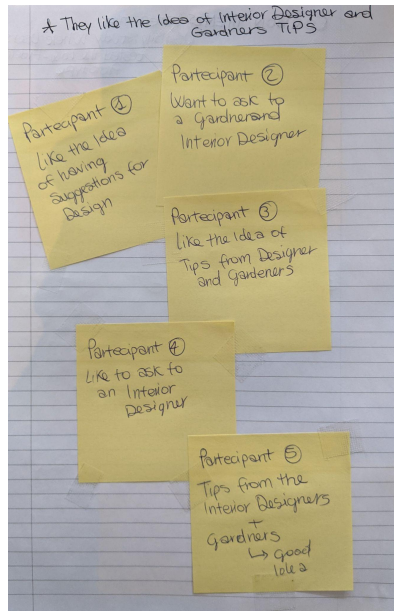 * They like the Idea of Interior Designer and
Gardners TIPS
Partecipant 1
like the Idea
of having
suggestions for
Design
Partecipant 2
Want to ask to
a Gardner and
Interior Designer
Partecipant 3
like the Idea of
Tips from Designer
and Gardeners
Partecipant 4
Like to ask to
an Interior
Designer
Partecipant 5
Tips from the
Interior Designers
+
Gardners
↳ Good
Idea